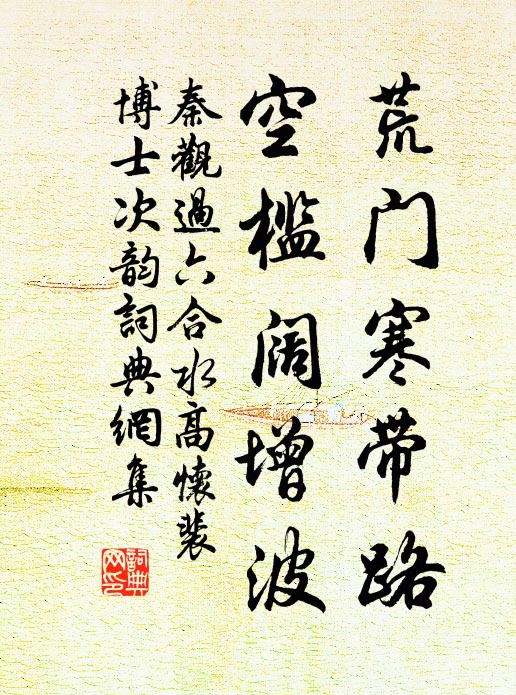 荒门寒带路
空槛阔增波
秦觀過六合水亭懷裴
博士次韵詞典網集
詞典
网印